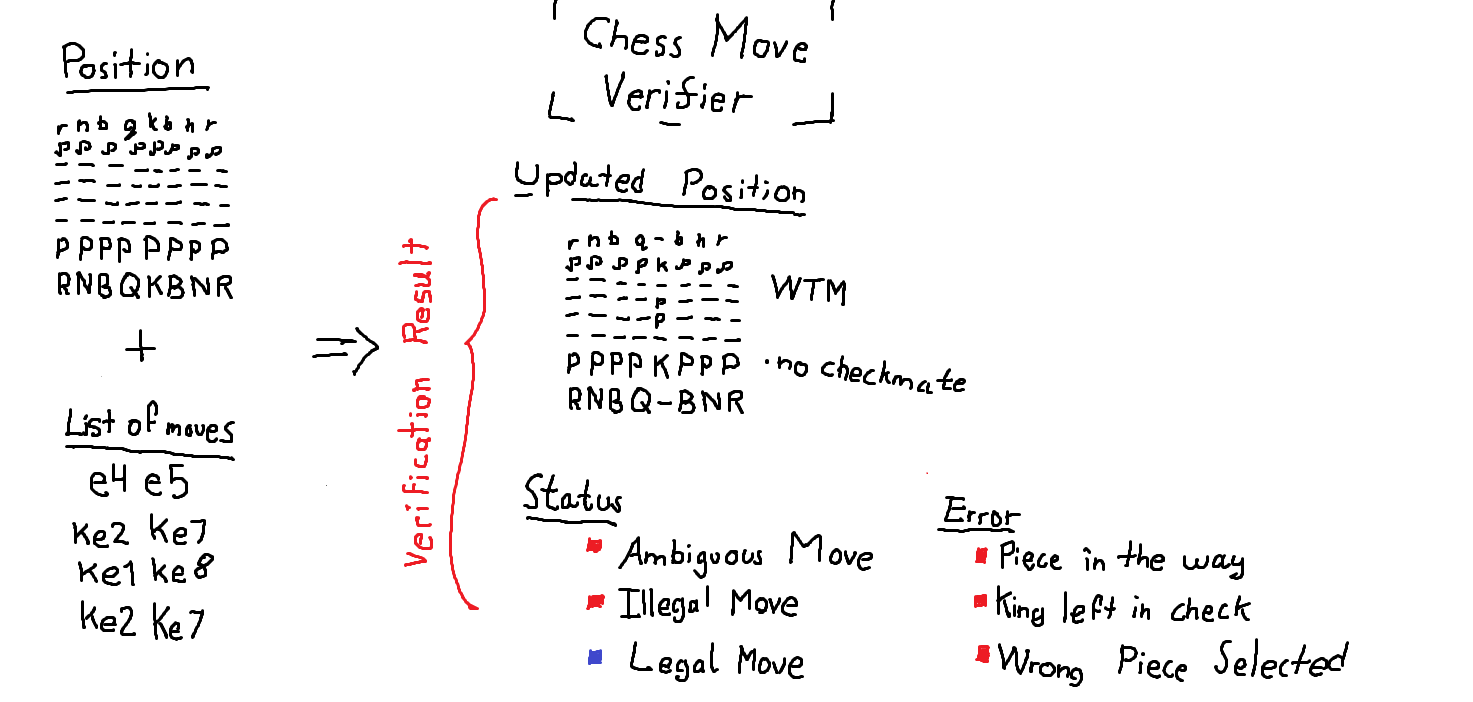 Chess Move
Verifier
Position
r n b q k b n r
p p p p p p p p
- - - - - - - -
- - - - - - - -
- - - - - - - -
- - - - - - - -
P P P P P P P P
R N B Q K B N R
+
List of moves
e4 e5
Ke2 Ke7
Ke1 Ke8
Ke2 Ke7
⇒
Verification Result
Updated Position
r n b q - b n r
p p p p k p p p
- - - - - - - -
- - - - p - - -
- - - - P - - -
- - - - - - - -
P P P P K P P P
R N B Q - B N R
WTM
· no checkmate
Status
Ambiguous Move
Illegal Move
Legal Move
Error
Piece in the way
King left in check
Wrong Piece Selected